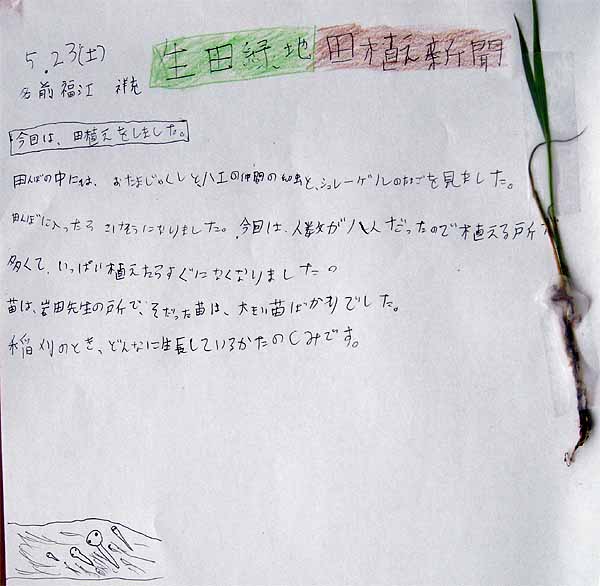 5.23(土)
生田緑地田植え新聞
名前 福江 祥
今回は、田植えをしました。
田んぼの中には、おたまじゃくしと、ハエの仲間の幼虫と、シュレーゲルのたまごを見ました。
田んぼに入ったら こけそうになりました。今回は、人数が八人だったので植える所が
多くて、いっぱい植えたらすぐになくなりました。
苗は、岩田先生の所で、そだった苗は、大きい苗ばかりでした。
稲刈のとき、どんなに生長しているかたのしみです。